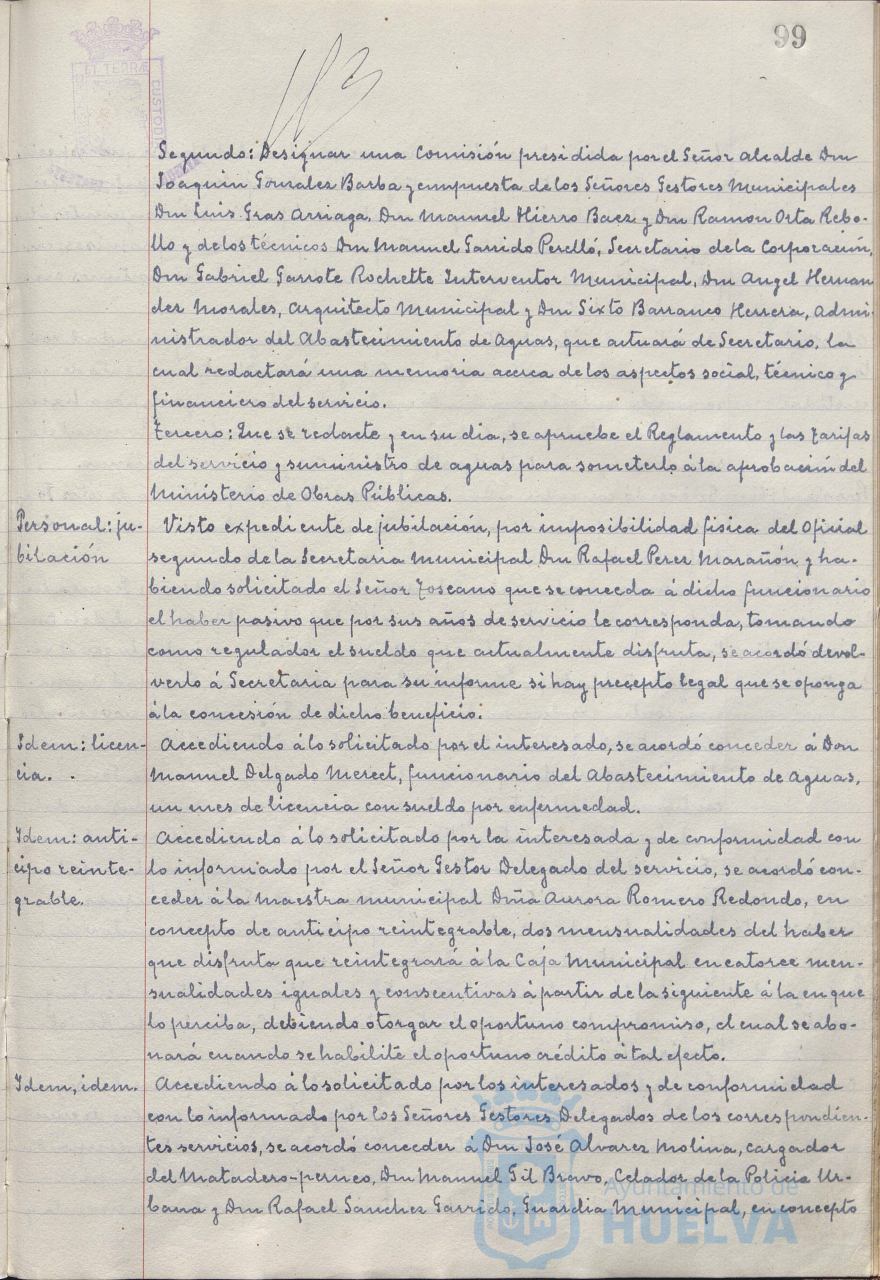 99
ET TERRÆ
CUSTODI
Segundo: Designar una Comisión presidida por el Señor Alcalde Don
Joaquin Gonzalez Barba y compuesta de los Señores Gestores Municipales
Don Luis Gras Arriaga, Don Manuel Hierro Baez y Don Ramon Orta Rebo-
llo y de los técnicos Don Manuel Garrido Perelló, Secretario de la Corporación,
Don Gabriel Garrote Rochette Interventor Municipal, Don Angel Hernan
dez Morales, Arquitecto Municipal y Don Sixto Barranco Herrera, Admi-
nistrador del Abastecimiento de Aguas, que actuará de Secretario, la
cual redactará una memoria acerca de los aspectos social, técnico y
financiero del servicio.
Tercero: Que se redacte y en su dia, se apruebe el Reglamento y las Tarifas
del servicio y suministro de aguas para someterlo á la aprobación del
Ministerio de Obras Públicas.
Personal: ju-
bilación
Visto expediente de jubilación, por imposibilidad fisica del Oficial
segundo de la Secretaria Municipal Don Rafael Perez Marañón y ha-
biendo solicitado el Señor Toscano que se conceda á dicho funcionario
el haber pasivo que por sus años de servicio le corresponda, tomando
como regulador el sueldo que actualmente disfruta, se acordó devol-
verlo á Secretaria para su informe si hay precepto legal que se oponga
á la concesión de dicho beneficio.
Idem: licen-
cia. .
Accediendo á lo solicitado por el interesado, se acordó conceder á Don
Manuel Delgado Merect, funcionario del Abastecimiento de Aguas,
un mes de licencia con sueldo por enfermedad.
Idem: anti-
cipo reinte-
grable.
Accediendo á lo solicitado por la interesada y de conformidad con
lo informado por el Señor Gestor Delegado del servicio, se acordó con-
ceder á la maestra municipal Dña Aurora Romero Redondo, en
concepto de anticipo reintegrable, dos mensualidades del haber
que disfruta que reintegrará á la Caja Municipal en catorce men-
sualidades iguales y consecutivas á partir de la siguiente á la en que
lo perciba, debiendo otorgar el oportuno compromiso, el cual se abo-
nará cuando se habilite el oportuno crédito á tal efecto.
Idem, idem.
Accediendo á lo solicitado por los interesados y de conformidad
con lo informado por los Señores Gestores Delegados de los correspondien-
tes servicios, se acordó conceder á Don José Alvarez Molina, cargador
del Matadero-perneo, Don Manuel Gil Bravo, Celador de la Policia Ur-
bana y Don Rafael Sanchez Garrido, Guardia Municipal, en concepto
Ayuntamiento de
HUELVA